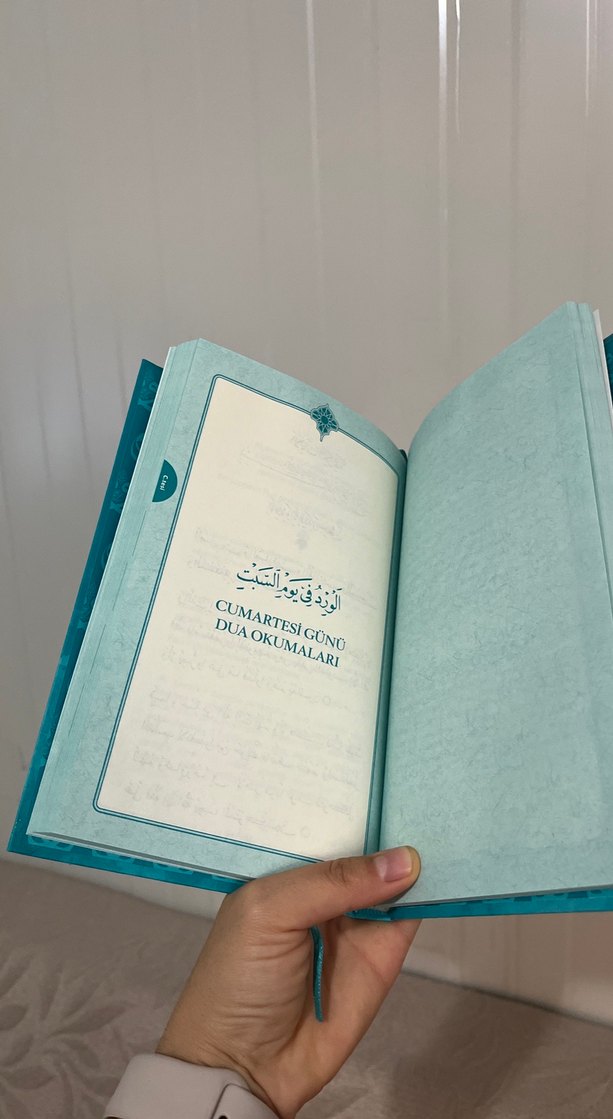 C.tesi
اَلْوِرْدُ فِي يَوْمِ السَّبْتِ
CUMARTESİ GÜNÜ
DUA OKUMALARI